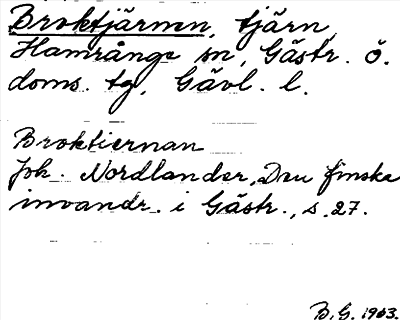 Broktjärnen, tjärn
Hamrånge sn, Gästr. ö.
doms. tg, Gävl. l.
Broktiernan
Joh. Nordlander, Den finska
invandr. i Gästr., s. 27.
B. G. 1963.